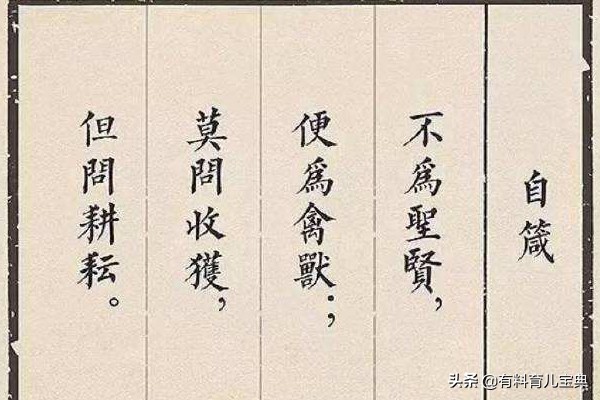 自箴
不為聖賢，
便為禽獸；
莫問收獲，
但問耕耘。
头条 @有料育儿宝典